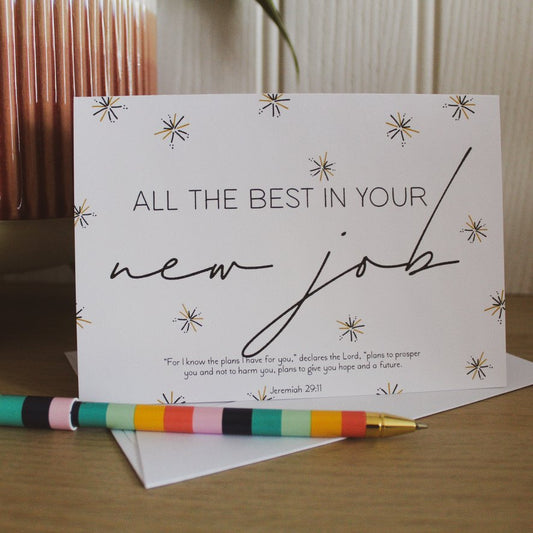 ALL THE BEST IN YOUR
new job
"For I know the plans I have for you," declares the Lord, "plans to prosper
you and not to harm you, plans to give you hope and a future.
Jeremiah 29:11